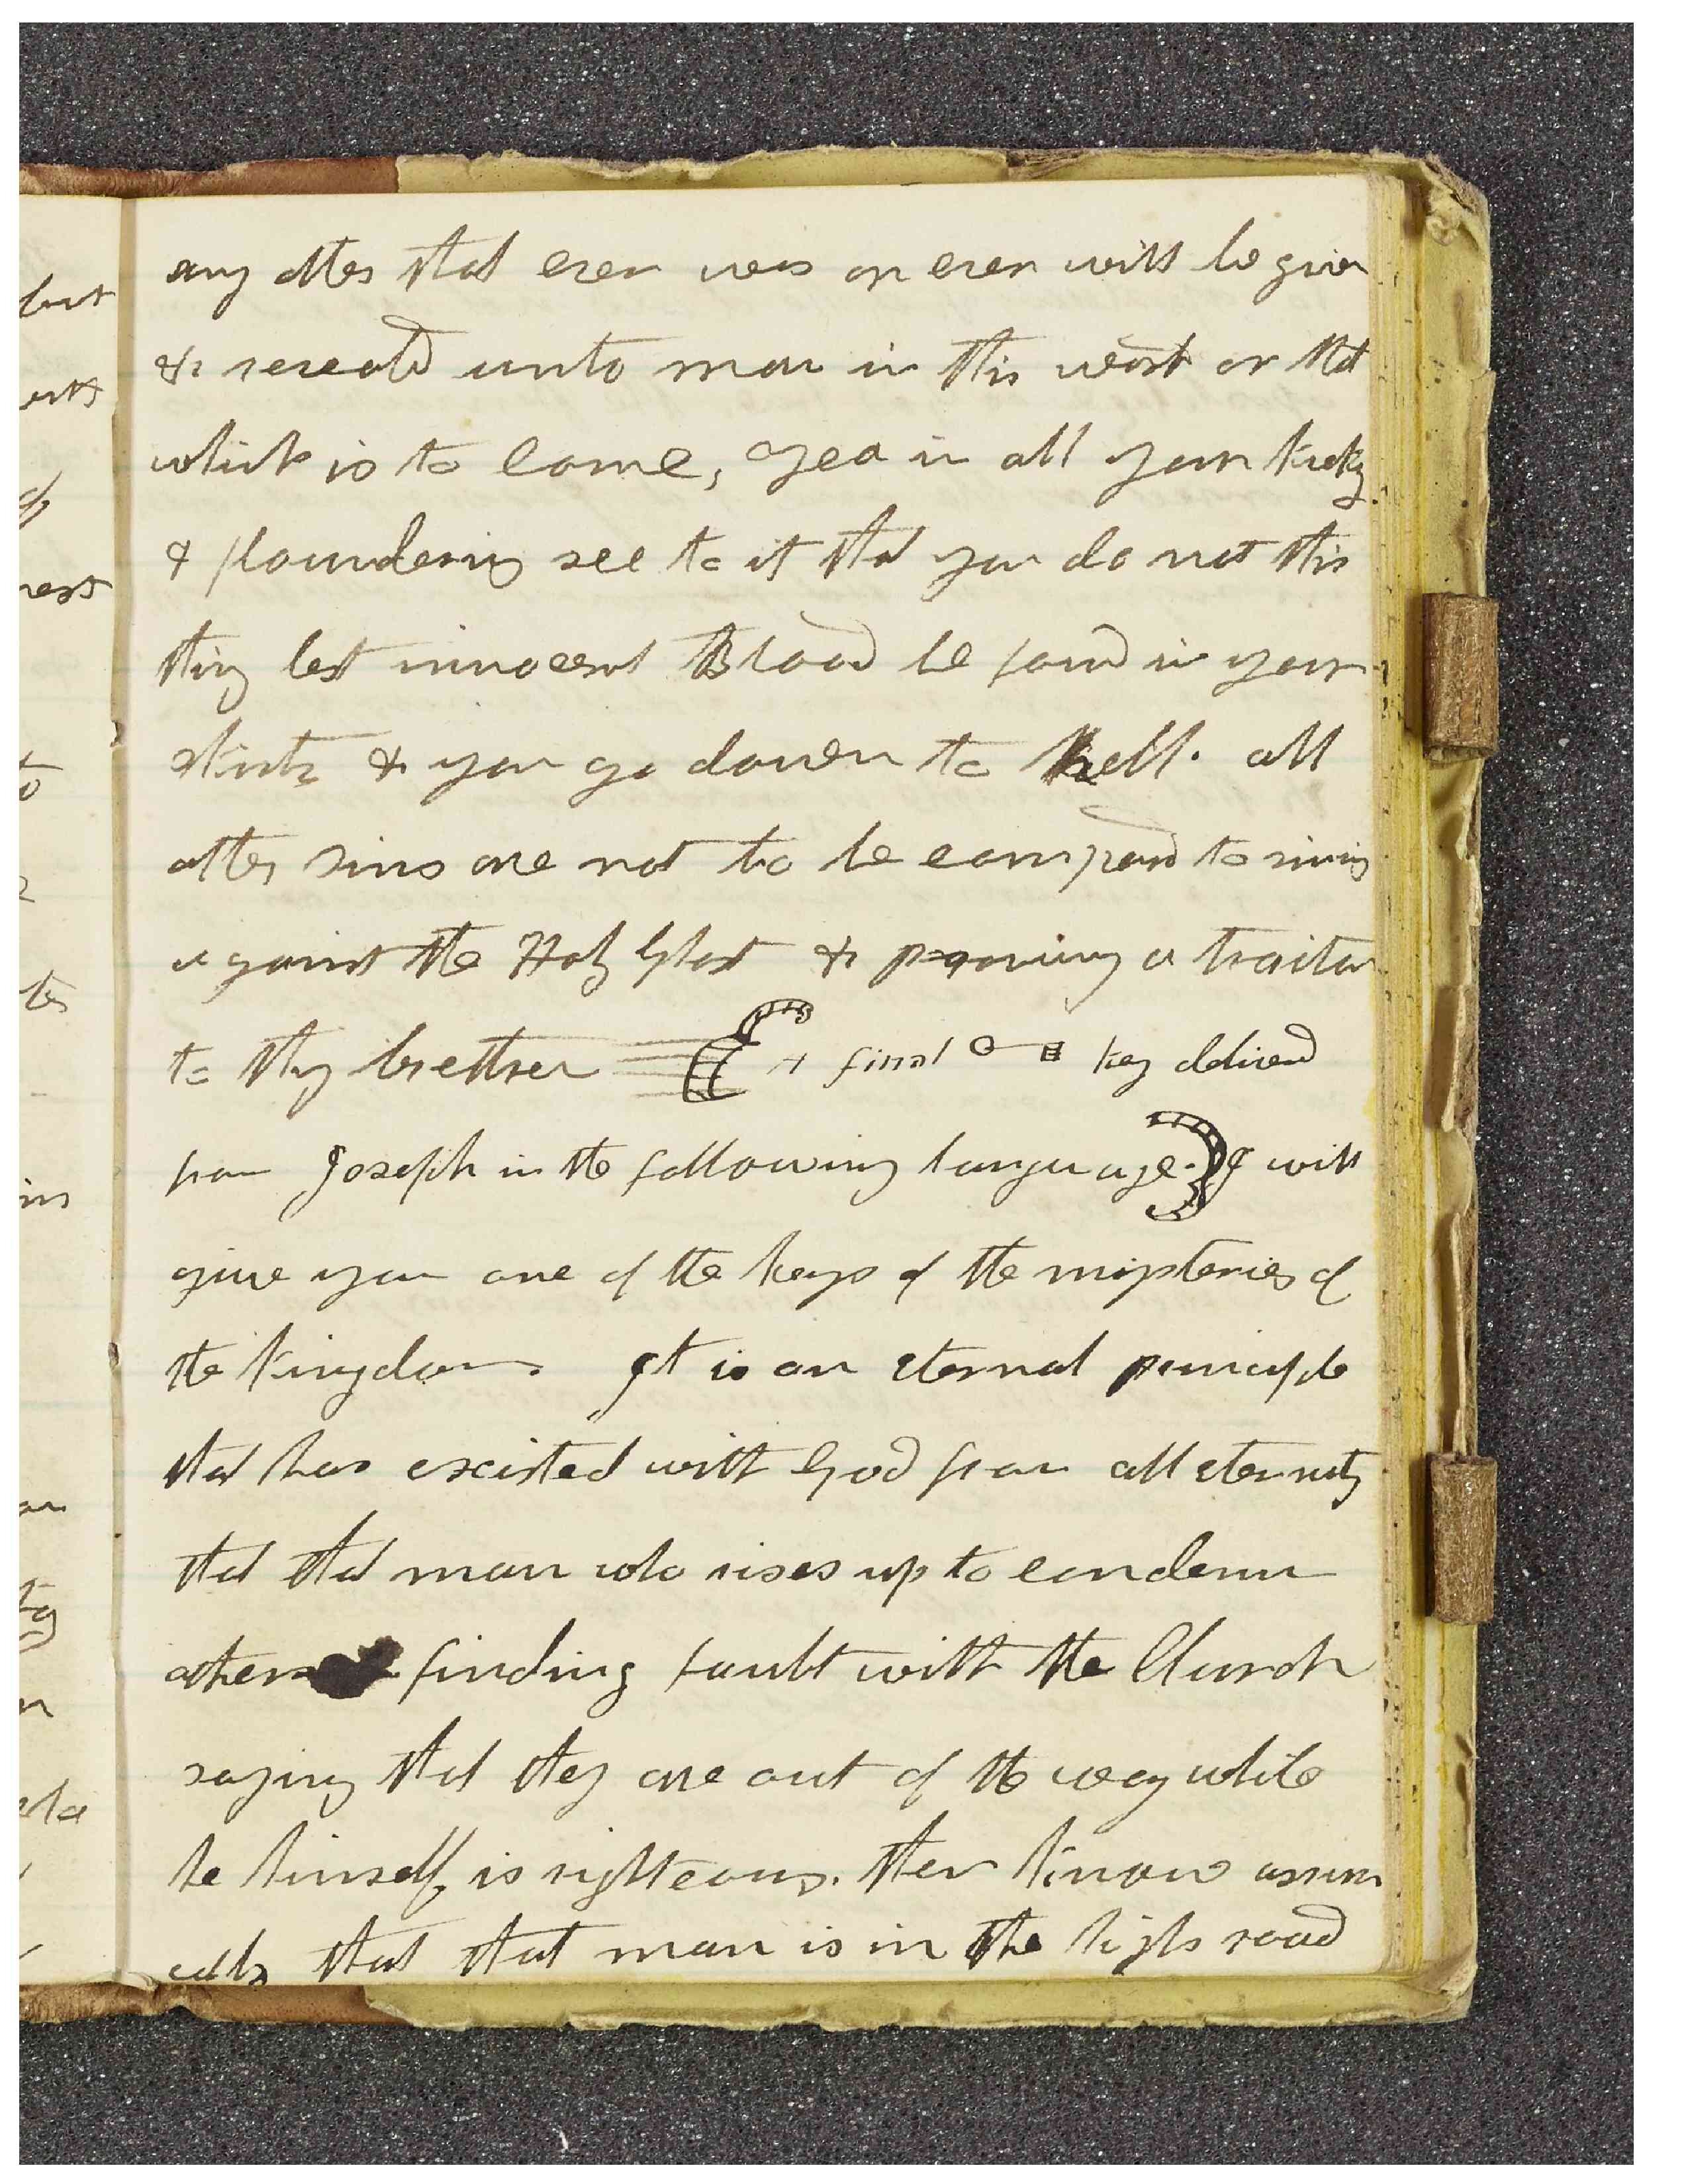 any other that ever was or ever will be given
& reveald unto man in this world or that
which is to come, yea in all your kicking
& floundering see to it that you do not this
thing lest innocent Blood be found in your
skirts & you go down to hell. all
other sins are not to be compard to sining
against the Holy Ghost & proving a traitor
to thy brethren + final key deliverd
from Joseph in the following language. I will
give you one of the keys of the mysteries of
the kingdom. It is an eternal principle
that has existed with God from all eternity
that that man who rises up to condemn
others finding fault with the Church
saying that they are out of the way while
he himself is righteous. then know assur
edly that that man is in the high road
but
to
in